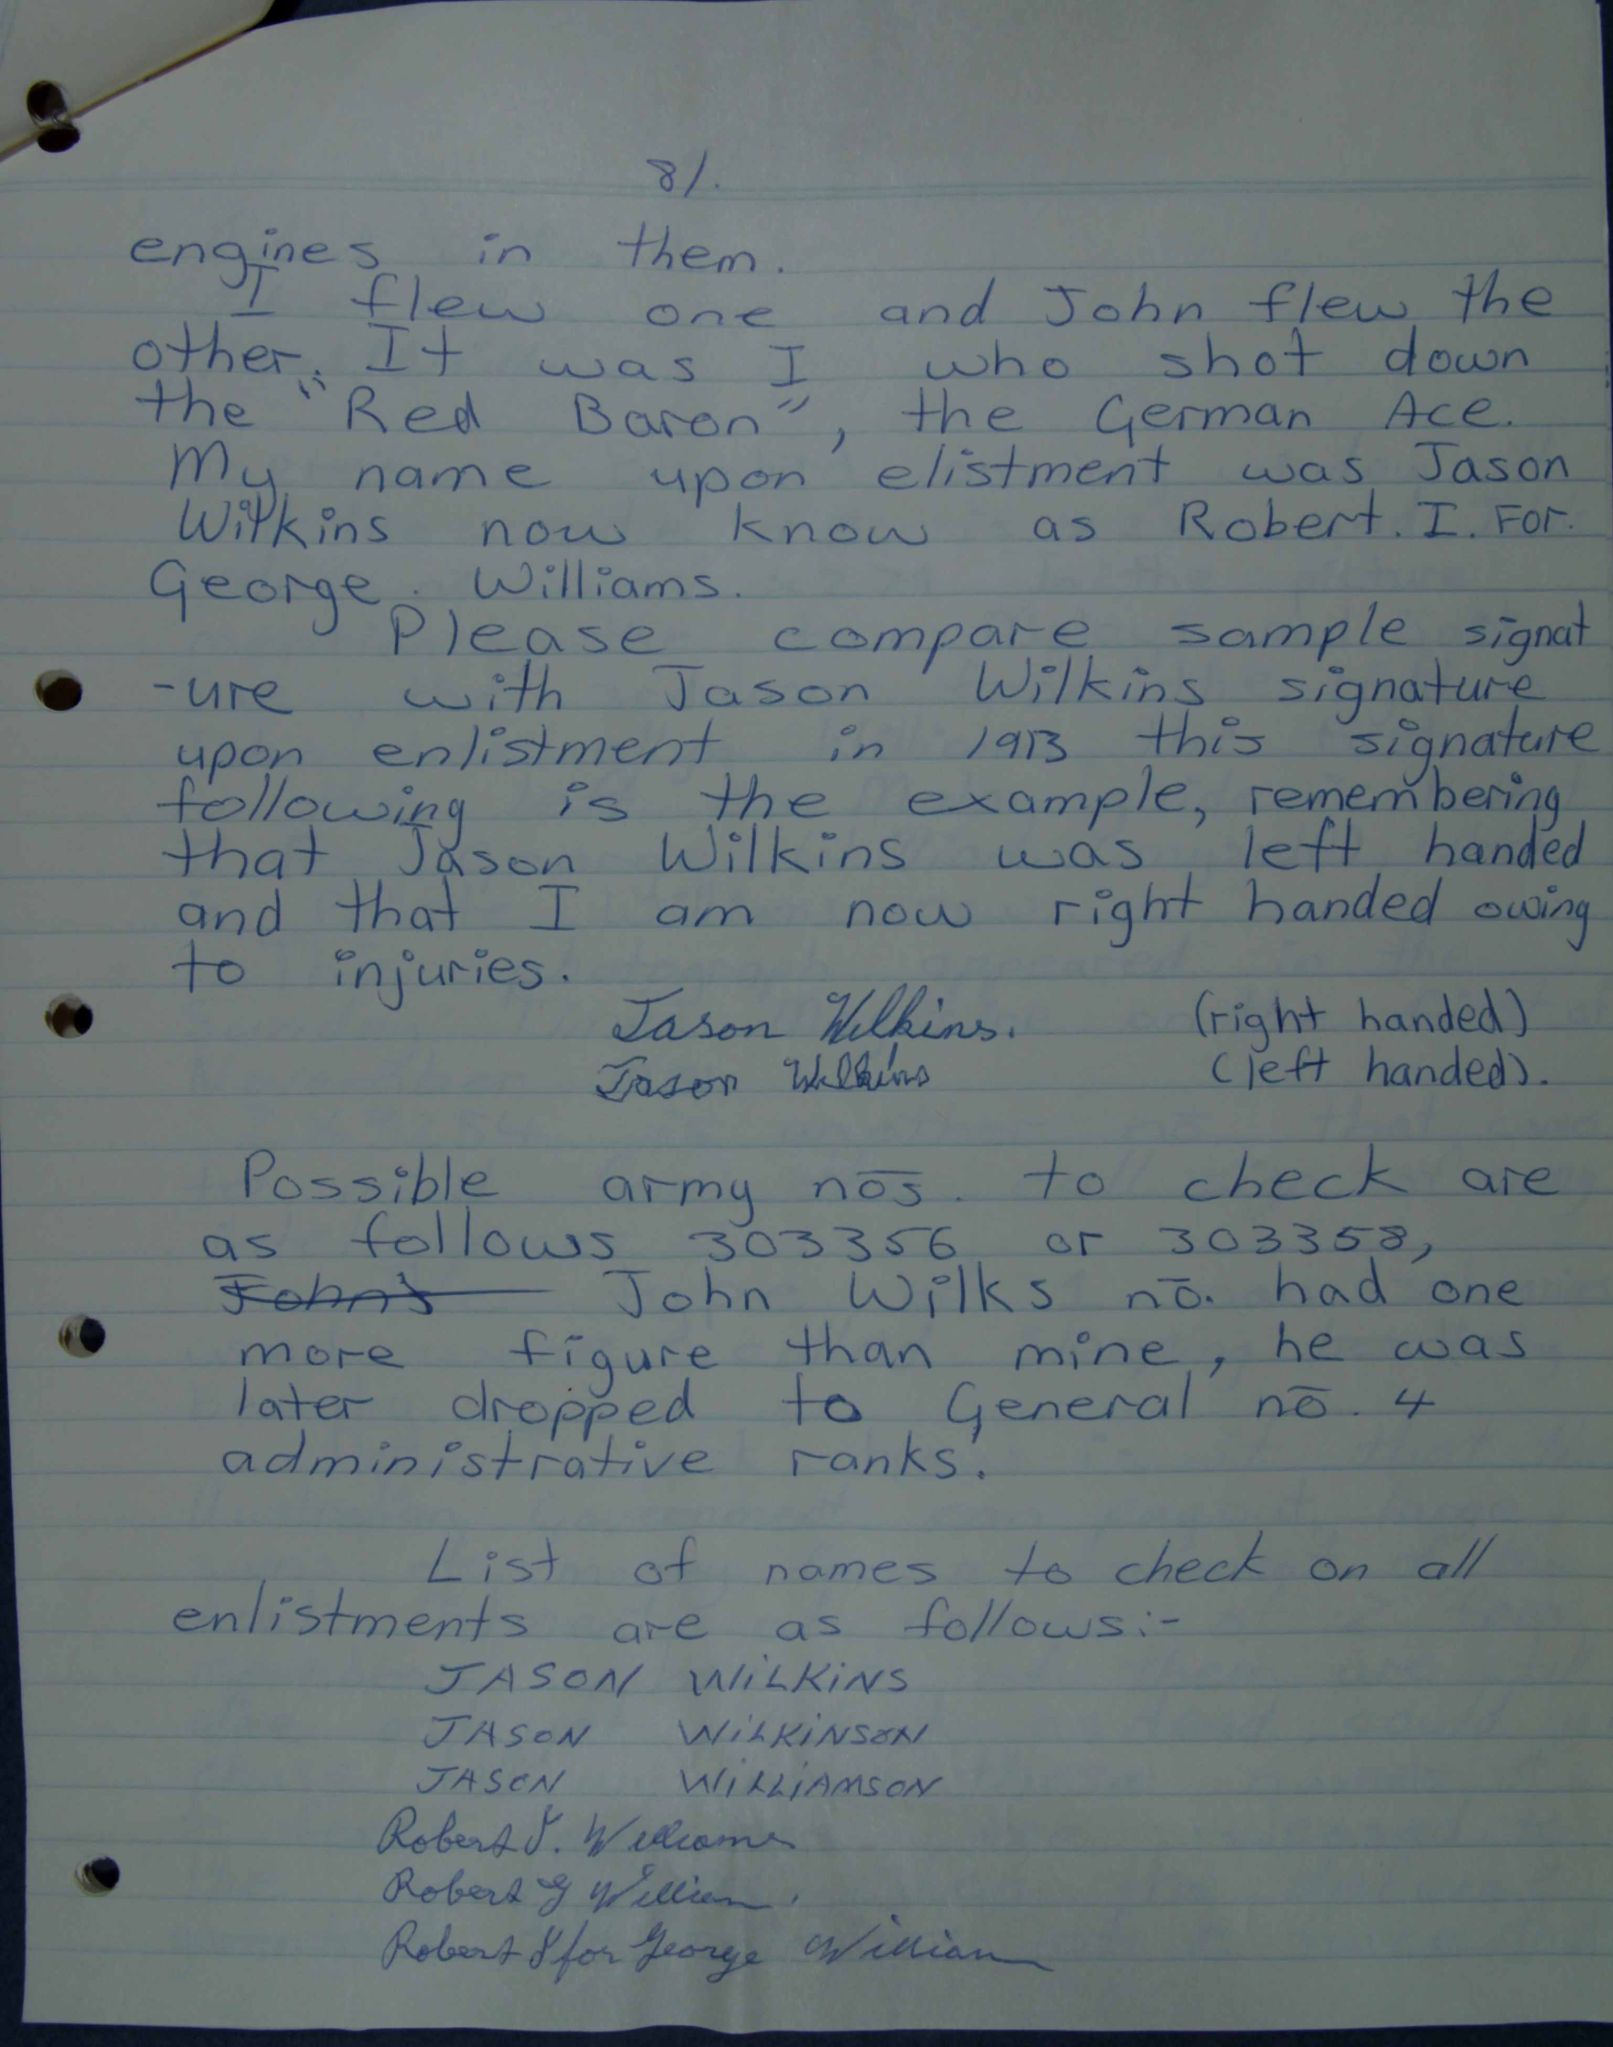 8/.
engines in them.
I flew one and John flew the
other. It was I who shot down
the "Red Baron", the German Ace.
My name upon elistment was Jason
Wilkins now know as Robert. I. For.
George. Williams.
Please compare sample signat
-ure with Jason Wilkins signature
upon enlistment in 1913 this signature
following is the example, remembering
that Jason Wilkins was left handed
and that I am now right handed owing
to injuries.
Jason Wilkins. (right handed)
Jason Wilkins (left handed).
Possible army nos. to check are
as follows 303356 or 303358,
John's John Wilks no. had one
more figure than mine, he was
later dropped to General no. 4
administrative ranks.
List of names to check on all
enlistments are as follows:-
JASON WiLKiNS
JASON WiLKiNSON
JASON WiLLiAMSON
Robert I. Williams
Robert G William.
Robert I for George William